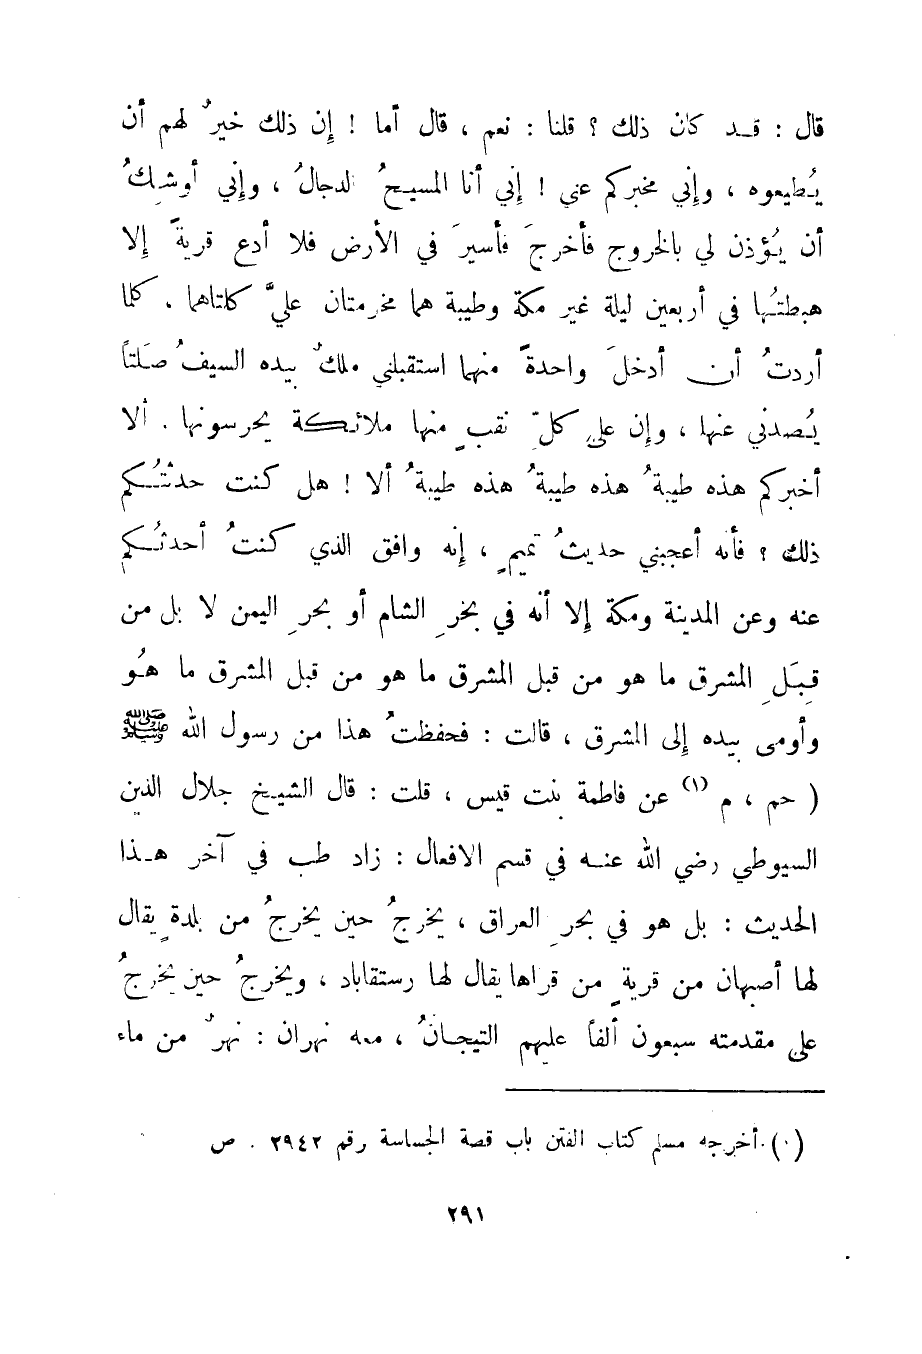 قال : قـد كان ذلك ؟ قلنا : نعم ، قال أما ! إن ذلك خيرٌ لهم أن
يُطيعوه ، وإني مخبركم عني ! إني أنا المسيحُ الدجالُ ، وإني أوشكُ
أن يُؤذن لي بالخروج فأخرجَ فأسيرَ في الأرض فلا أدع قريةً إلا
هبطتُها في أربعين ليلة غير مكة وطيبة هما محرمتان عليَّ كلتاهما . كلما
أردتُ أن أدخلَ واحدةً منهما استقبلني ملكٌ بيده السيفُ صَلتاً
يُصدني عنها ، وإن على كلِّ نقبٍ منها ملائكة يحرسونها . ألا
أخبركم هذه طيبةُ هذه طيبةُ هذه طيبةُ ألا ! هل كنت حدثتُكم
ذلك ؟ فأنه أعجبني حديثُ تميمٍ ، إنه وافق الذي كنتُ أحدثُكم
عنه وعن المدينة ومكة إلا أنه في بحرِ الشام أو بحرِ اليمن لا بل من
قِبَلِ المشرق ما هو من قبل المشرق ما هو من قبل المشرق ما هُو
وأومى بيده إلى المشرق ، قالت : فحفظتُ هذا من رسول الله ﷺ
( حم ، م (١) عن فاطمة بنت قيس ، قلت : قال الشيخ جلال الدين
السيوطي رضي الله عنه في قسم الافعال : زاد طب في آخر هـذا
الحديث : بل هو في بحرِ العراق ، يخرجُ حين يخرجُ من بلدةٍ يقال
لها أصبهان من قريةٍ من قراها يقال لها رستقاباد ، ويخرجُ حين يخرجُ
على مقدمته سبعون ألفاً عليهم التيجانُ ، معه نهران : نهرٌ من ماء
(١) أخرجه مسلم كتاب الفتن باب قصة الجساسة رقم ٢٩٤٢ . ص
٢٩١